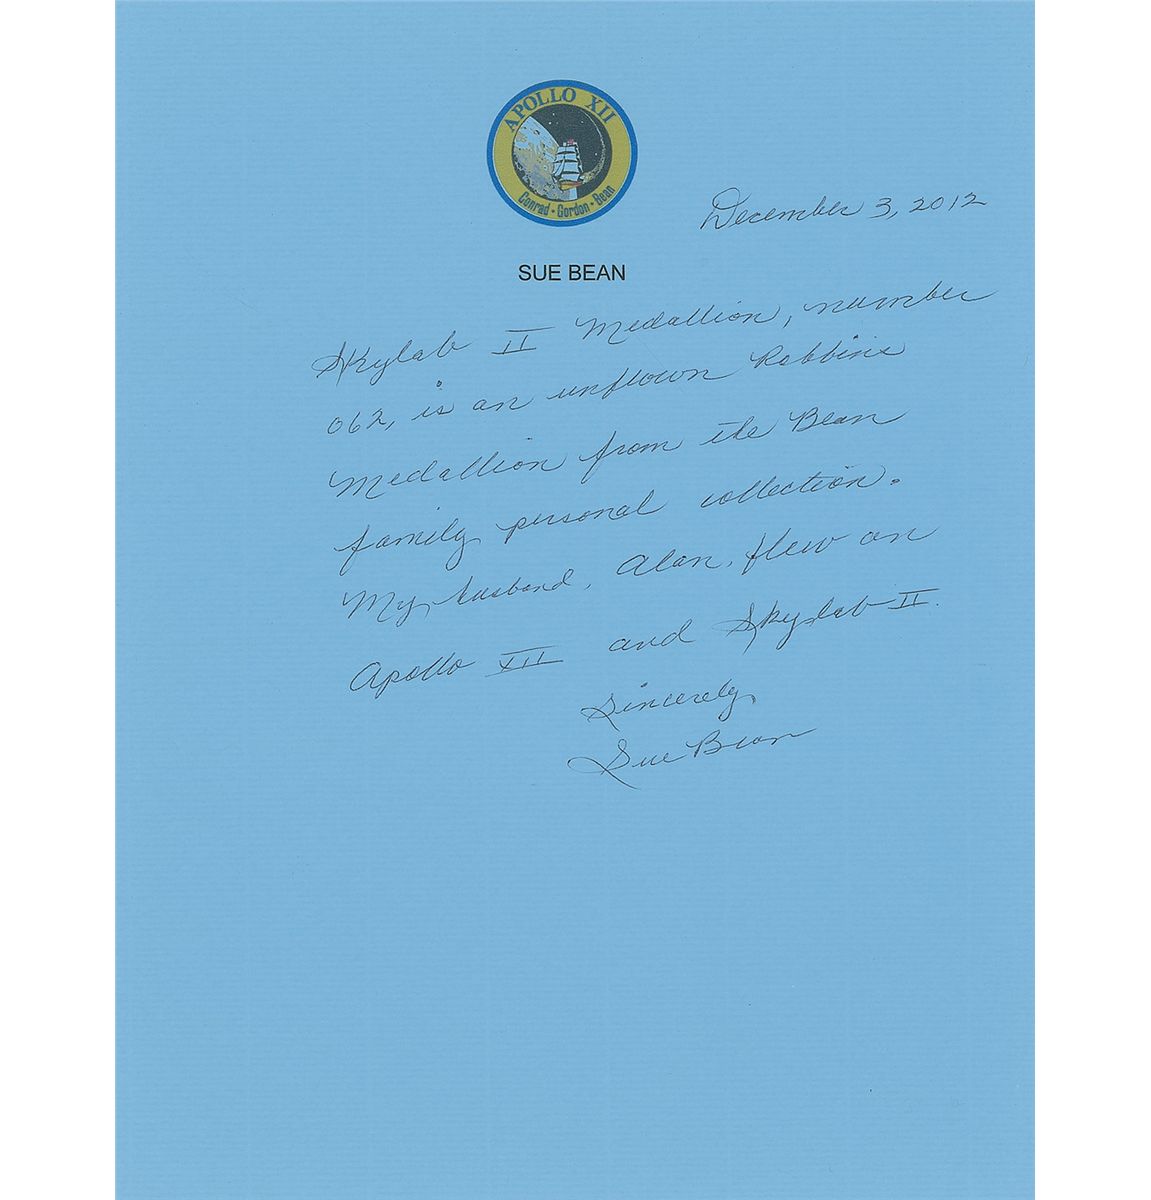 APOLLO XII
Conrad · Gordon · Bean
December 3, 2012
SUE BEAN
Skylab II Medallion, number
062, is an unflown Robbins
Medallion from the Bean
family personal collection.
My husband, Alan, flew on
Apollo XII and Skylab II.
Sincerely,
Sue Bean